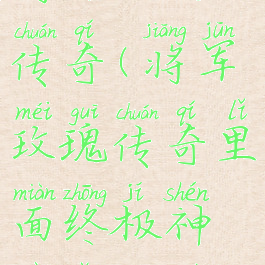 chuán qí jiāng jūn
传奇(将军
méi guī chuán qí lǐ
玫瑰传奇里
miàn zhōng jí shén
面终极神